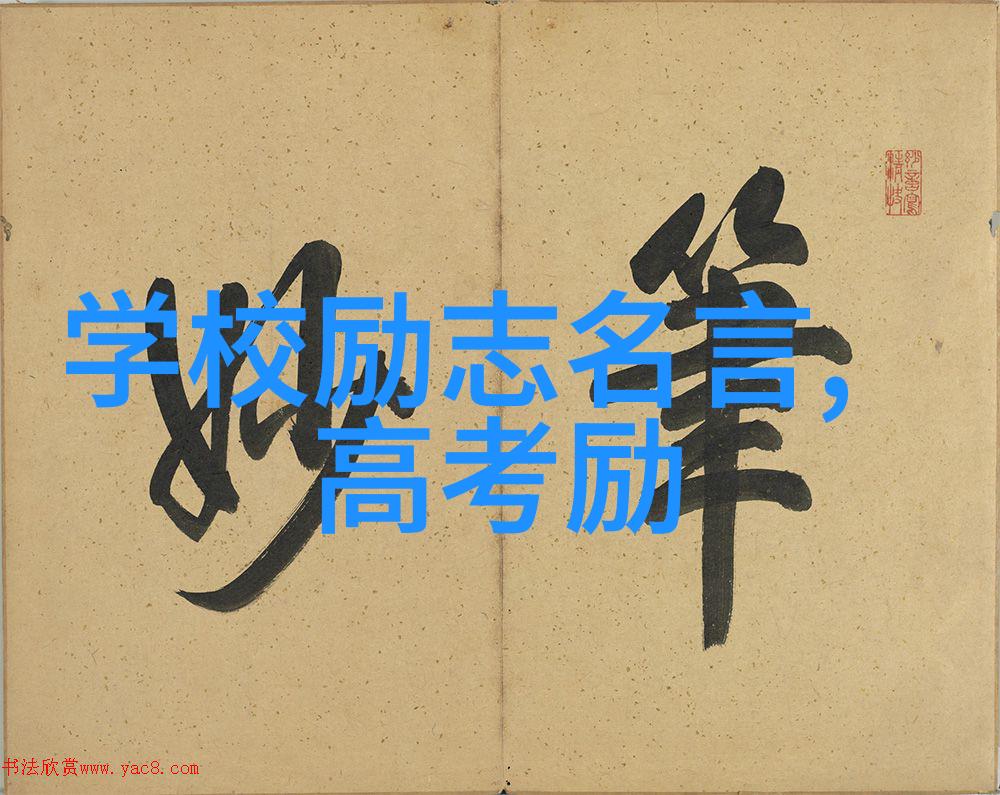 筆
妙
学校励志名言,
高考励
书法欣赏www.yac8.com